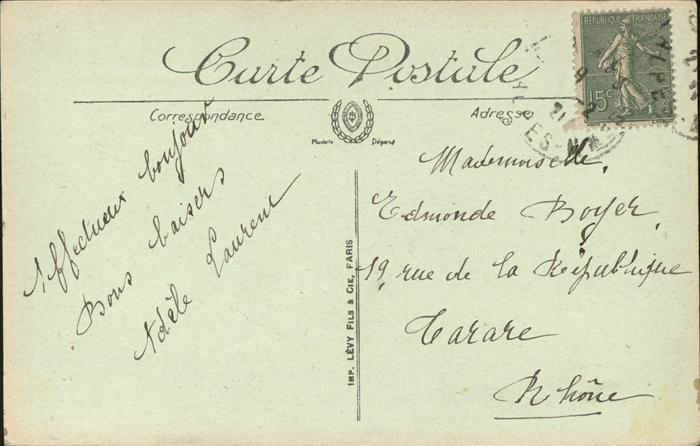 Carte Postale
Correspondance
Adresse
Modèle Déposé
RÉPUBLIQUE FRANÇAISE
15c
POSTES
Affectueux bonjour
Bons baisers
Adèle Laurent
IMP. LÉVY FILS & CIE, PARIS
Mademoiselle,
Edmonde Boyer,
19, rue de la République
Tarare
Rhône